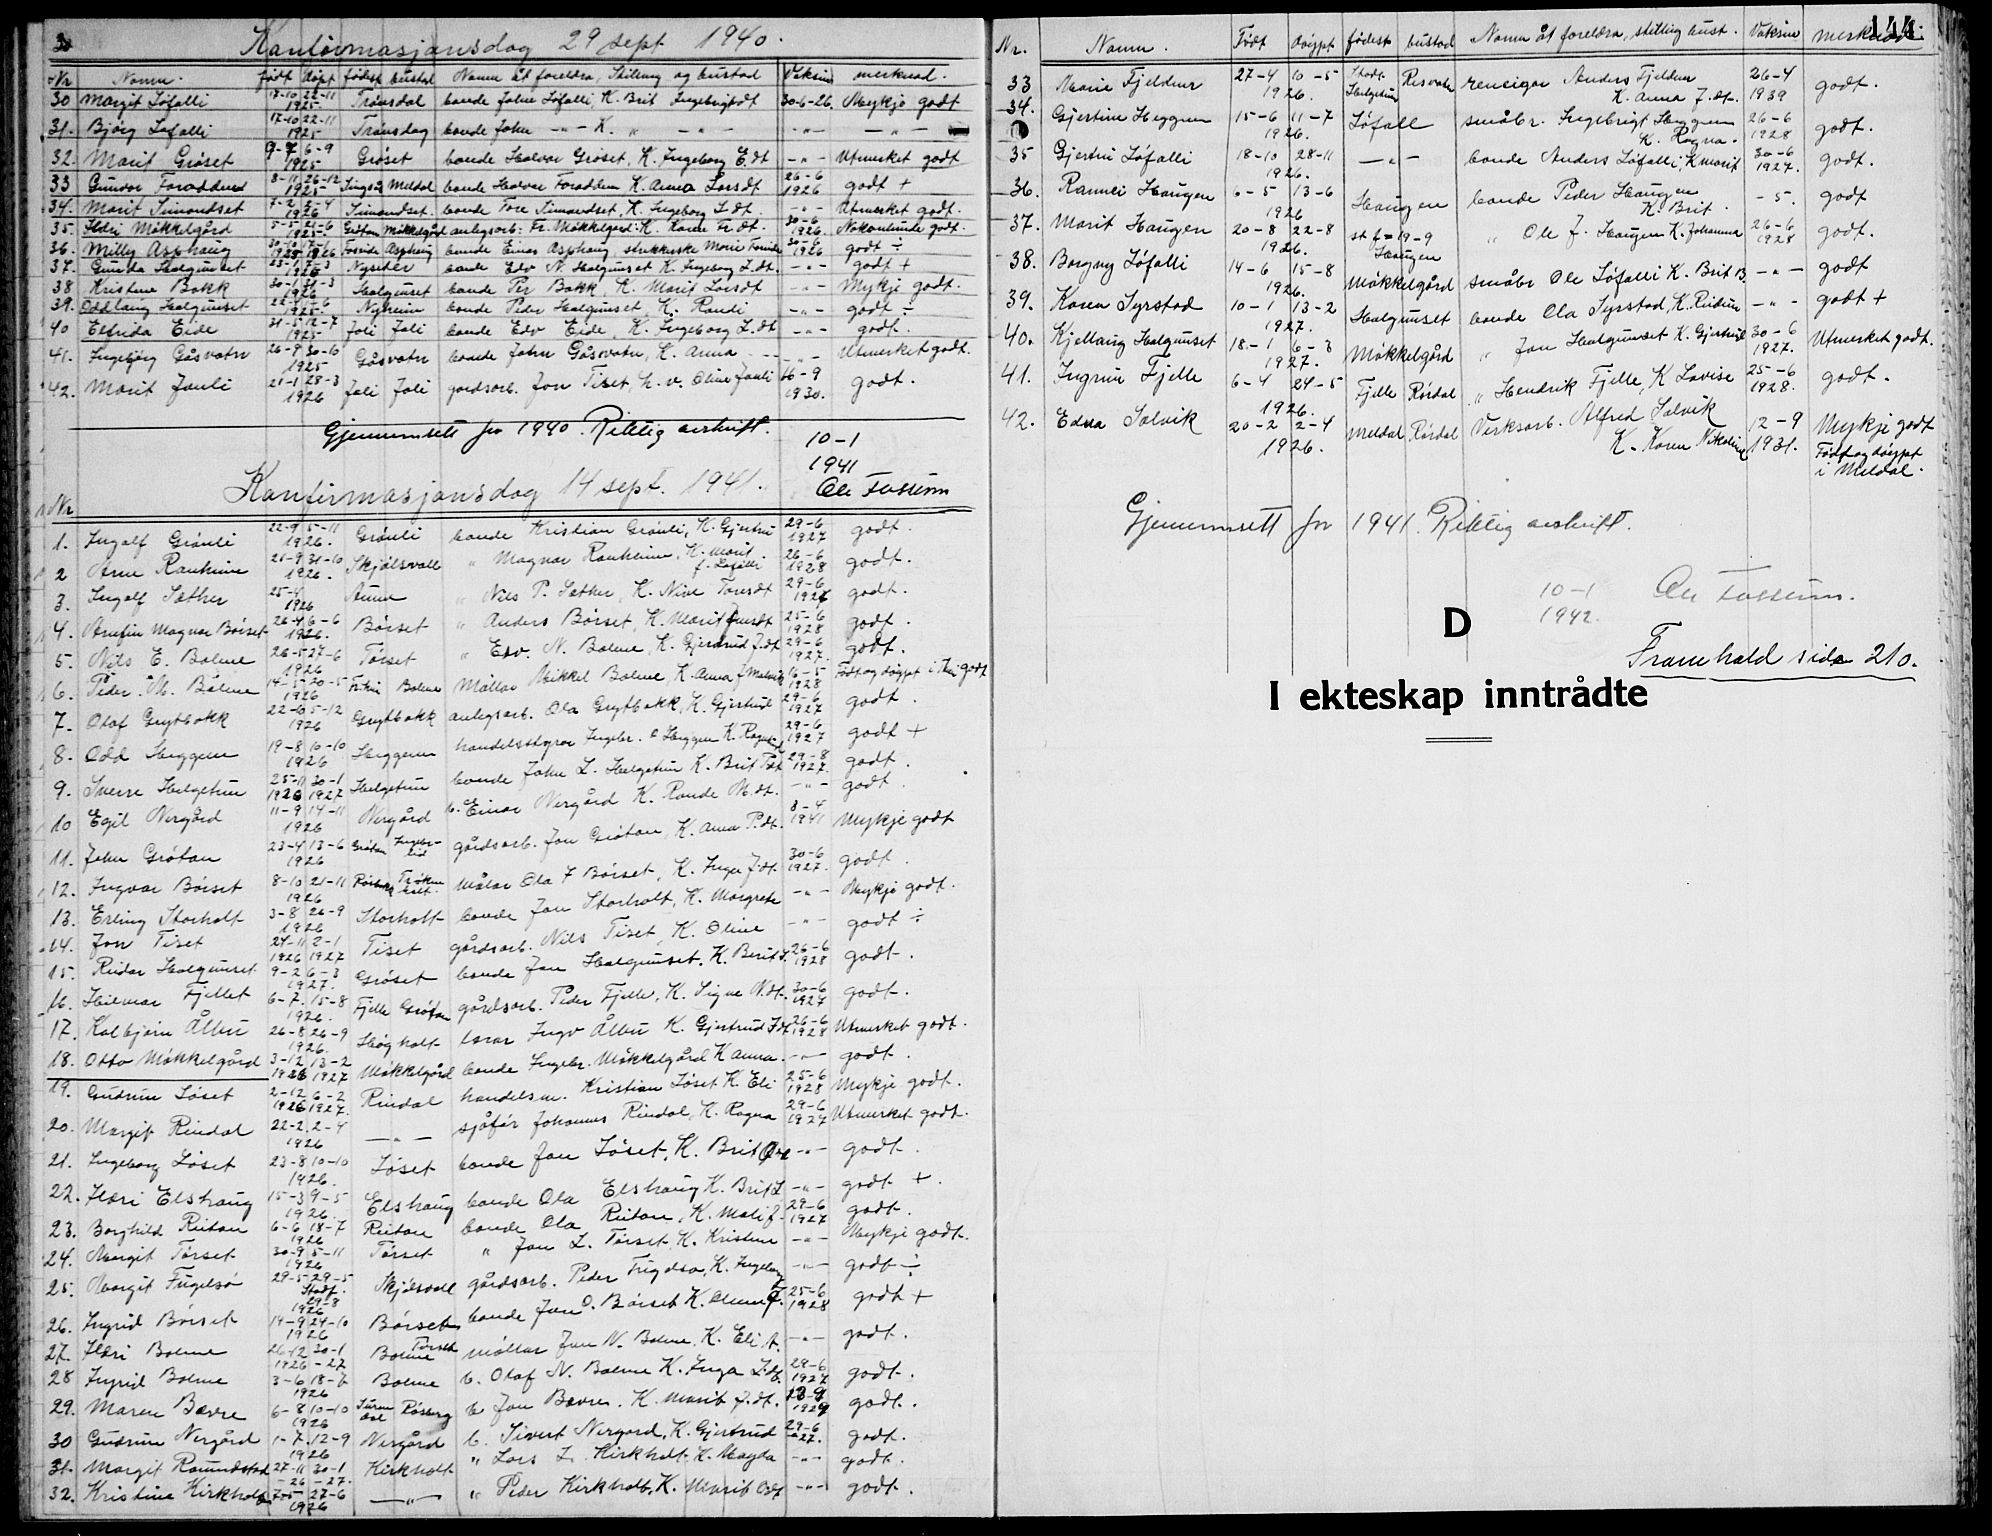 Konfirmasjonsdag 29 sept 1940.
Nr Namn. født døipt fødest. bustad Namn åt foreldra, Stilling og bustad Vaksine merknad.
30 Margit Løfalli 17-10 22-11 1925 Trønsdal bonde John Løfalli, K. Brit Ingebrigtdt 30-6-26. Mykje godt
31. Bjørg Løfalli 17-10 22-11 1925 Trønsdag bonde John -"- K. " -"- -"- -"-
32. Marit Grøset 9-7 6-9 1925 Grøset bonde Halvar Grøset, K. Ingeborg E.dt -"- Utmerket godt
33 Gunvor Foradderen 8-11 26-12 1925 Meldal bonde Halvar K. Anna Larsdt 26-6 1926 godt +
34. Marit Simondset 7-2 5-4 1926 Simondset. bonde Tore Simondset, K. Ingeborg L.dt -"- Utmerket godt.
35. Ildri Møkkelgård 1925 Møkkelgård anlegsarb. Fr. Møkkelgård K. Karen Fr.dt. 30-6 1926. Nokonlunde godt.
36. Milly Asphaug 30-10 17-6 1925 1926 Asphaug bonde Einar Asphaug 30-6 1926 godt ÷
37. Gunda Halgunset 1926 Nyseter bonde Edv N. Halgunset K. Ingeborg L.dt. -"- godt +
38 Kristine Bakk 30-1 31-3 1926 Halgunset bonde Per Bakk, K. Marit Larsdt -"- Mykje godt.
39. Oddlaug Halgunset 1925. Nyheim bonde Peder Halgunset, K. Randi -"- godt ÷
40 Elfrida Eide 31-5 12-7 1925 Joli Joli bonde Edv Eide, K. Ingeborg L.dt -"- godt.
41. Ingebjørg Gåsvatn 26-9 30-10 1925 Gåsvatn bonde John Gåsvatn, K. Anna -"- Utmerket godt.
42. Marit Jauli 21-1 28-3 1926 Joli Joli gardsarb. Jon Tiset, h. v. Oline Jauli 16-9 1930. godt.
Gjennomsett for 1940. Riktig avskrift. 10-1 1941
Ole Fossum
Konfirmasjonsdag 14 sept. 1941.
Nr
1. Ingolf Grønli 22-9 5-11 1926. Grønli bonde Kristian Grønli, K. Gjertru 29-6 1927 godt.
2 Arne Ranheim 21-9 31-10 1926. Skjølsvoll " Magnar Ranheim, K. Marit f. Løfalli 26-6 1928 godt.
3. Ingolf Sæther 25-4 1926 Aune " Nils P. Sæther, K. Toresdt 29-6 godt.
4. Arnfin Magnar Børset 26-4 6-6 1926. Børset " Anders Børset, K. Marit 25-6 1928 godt.
5. Nils E. Bolme 26-5 27-6 1926 Tørset " Edv. N. Bolme, K. Gjertrud J.dt 29-6 1927. godt.
6. Peder M. Bolme 20-5 1926 Bolme Møllar Mikkel Bolme K. Anna 16-5 1928 Født og døypt i godt
7. Olaf Grytbakk 5-12 1926 Grytbakk anlegsarb. Ola Grytbakk, K. Gjertrud 29-6 1927 godt.
8. Odd Heggem 19-8 10-10 1926 Heggem handelsstyrar Ingebr. O Heggem K. 29-6 1927 godt +
9. Sverre Helgetun 25-11 30-1 1926 1927 Helgetun bonde John L. Helgetun K. Brit 29-8 1927. godt.
10 Egil Nergård 11-9 14-11 1926 Nergård b. Einar Nergård K. Rande M.dt. -"- godt.
11. John Grøtan 23-4 13-6 1926 Grøtan gårdsarb. Jon Grøtan, K. Anna P.dt. 8-4 1941 Mykje godt
12. Ingvar Børset 8-10 21-11 1926 Målar Ola J Børset, K. Inga J.dt 30-6 1927. godt.
13. Erling Storholt 3-8 26-9 1926 Storholt bonde Jon Storholt, K. Margrete -"- Mykje godt.
14. Jon Tiset 24-11 2-1 1926 1927 Tiset gårdsarb. Nils Tiset, K. Oline -"- godt ÷
15. Reidar Halgunset 9-2 6-3 1927. Grøset bonde Jon Halgunset. K. Berit J. 26-6 1928 godt.
16. Hilmar Fjellet 6-7. 15-8 1926. Fjelle Grøtan gårdsarb. Peder Fjelle, K. Signe N.dt. 30-6 1927 godt.
17. Kolbjørn Ålbu 26-8 26-9 1926. Høgholt lærar Ingv Ålbu K. Gjertrud J.dt 26-6 1928 Utmerket godt.
18. Otto Møkkelgård 3-12 13-2 1926 1927 Møkkelgård bonde Ingebr. Møkkelgård K Anna. -"- godt.
19. Gudrun Løset 2-12 6-2 1926 1927. Rindal handelsm. Kristian Løset K. Eli 25-6 1928 Mykje godt.
20. Margit Rindal 22-2. 2-4 1926 -"- sjåfør Johannes Rindal, K. Ragna 29-6 1927 Utmerket godt.
21. Ingeborg Løset 23-8 10-10 1926. Løset bonde Jon Løset, K. Brit -"- godt.
22. Ildri Elshaug 15-3 9-5 1926. Elshaug bonde Ola Elshaug K. Brit L -"- godt +.
23. Borghild Reitan 6-6 18-7 1926 Reitan bonde Ola Reitan, K. Mali J. 29-6 1927 godt.
24. Margit Tørset 30-9 5-11 1926 Tørset " Jon L. Tørset K. Kristine -"- Mykje godt.
25. Margit Fugelsø 29-5 29-5 29-8 1926 Skjølsvoll gårdsarb. Peder Fugelsø, K. Ingeborg -"- godt ÷
26. Ingrid Børset 19-9 24-10 1926 Børset bonde Jon O. Børset K. 25-6 1928 godt +
27. Ildri Bolme 26-12 30-1 1926-27 Bolme Tørset møllar Jon N. Bolme. K. Eli A. -"- godt.
28 Ingrid Bolme 3-6 18-7 1926 Bolme b. Olaf N. Bolme K. Inga 29-6 1927 godt.
29. Maren Bævre 6-8 10-10 1926 b Jon Bævre. K. Marit J.dt. godt.
30 Gudrun Nergård 1-7. 12-9 1926 Nergård b. Sivert Nergård, K. Gjertrud 29-6 -27. godt.
31. Margit Romundstad 27-11 30-1 -26 -27. Kirkholt " Lars L. Kirkholt. K. Magda -"- godt.
32. Kristine Kirkholt 27-6 1926 -"- " Peder Kirkholt, K. Marit -"- godt.
144.
Nr. Namn. Født døypt fødest bustad Namn åt foreldra, stilling bust. Vaksine merknad
33 Marie Fjeldner 27-4 10-5 1926. Helgetun reneigar Anders Fjeldner K. Anna J.dt. 26-4 1939 godt.
34. Gjertine Heggem 15-6 11-7 1926. Løfall småbr. Ingebrigt Heggem K. Ragna. 26-6 1928 godt.
35 Gjertru Løfalli 18-10 28-11 1926. -"- bonde Anders Løfalli, K. Marit 30-6 1927. godt.
36. Rannei Haugen 6-5 13-6 1926 Haugen bonde Peder Haugen K. Brit. -5. godt
37. Marit Haugen 20-8 22-8 1926. st f = 19-9 Haugen " Ole J. Haugen K. Johanna 26-6 1928 godt.
38. Borgny Løfalli 14-6 15-8 1926. Møkkelgård småbr Ole Løfalli K. Brit B. -"- godt
39. Karen Syrstad 10-1 13-2 1927. Halgunset bonde Ola Syrstad, K. Reidun -"- godt +
40. Kjellaug Halgunset 18-1 6-3 1927. Møkkelgård " Jon Halgunset K. Gjertrud 30-6 1927. Utmerket godt.
41. Ingrun Fjelle 6-4 24-5 1926. Fjelle Rørdal " Hendrik Fjelle, K Lovise 25-6 1928. godt.
42. Edna Solvik 20-2 2-4 1926. Meldal Rørdal Verksarb. Alfred Solvik K. Karen Nikoline 12-9 1931. Mykje godt
Født og døypt i Meldal.
Gjennomsett for 1941. Riktig avskrift.
10-1 1942. Ole Fossum.
D
Framhald side 210.
I ekteskap inntrådte